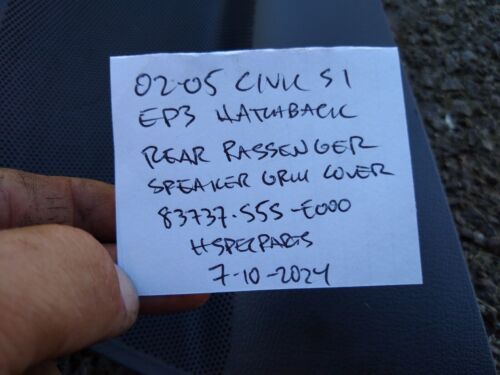 02-05 CIVIC SI
EP3 HATCHBACK
REAR PASSENGER
SPEAKER GRILL COVER
83737-S5S-E000
HSPECPARTS
7-10-2024